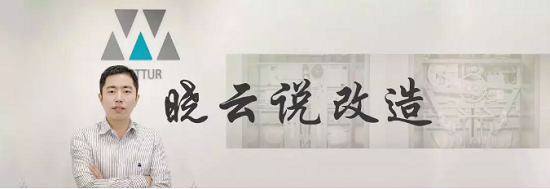 TTUR
晓云说改造